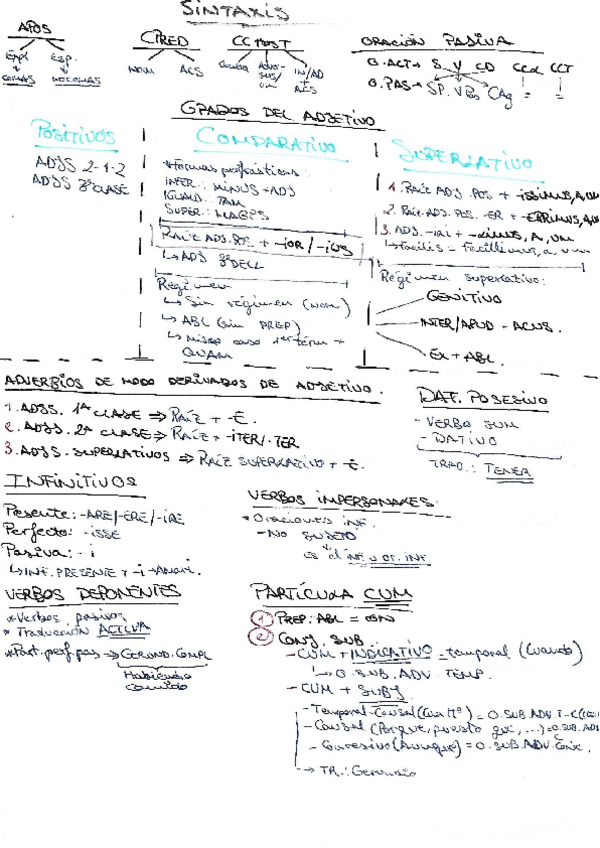 SINTAXIS
APOS
Expl Esp.
COMAS NO COMAS
CPRED
NOM ACS
CC POST
ORACIÓN PASIVA
O.ACT → S V CD CCL CCT
O.PAS → SP. VPas CAg = =
GRADOS DEL ADJETIVO
POSITIVOS
ADJS 2-1-2
ADJS 3ª CLASE
COMPARATIVO
*Formas perifrásticas
INFER.: MINUS + ADJ
IGUALD.: TAM
SUPER.: MAGIS
RAÍZ ADJ. POS + -IOR/-IUS
↳ ADJ 3ª DECL
Régimen
↳ Sin régimen (NOM)
↳ ABL (sin PREP)
↳ Mismo caso 1er térm +
QUAM
SUPERLATIVO
1. RAÍZ ADJ. POS + -ISSIMUS, A, UM
2. RAÍZ ADJ. POS. -ER + -ERRIMUS, A, UM
↳ Facilis = facillimus, a, um
Régimen superlativo:
GENITIVO
INTER/APUD - ACUS.
EX + ABL.
ADVERBIOS DE MODO DERIVADOS DE ADJETIVO.
1. ADJS. 1ª CLASE ⇒ RAÍZ + -E.
2. ADJS. 2ª CLASE ⇒ RAÍZ + -ITER/-TER
3. ADJS. SUPERLATIVOS ⇒ RAÍZ SUPERLATIVO + -E.
DAT. POSESIVO
- VERBO SUM
- DATIVO
TRAD.: TENER
INFINITIVOS
Presente: -ARE/-ERE/-IRE
Perfecto: -ISSE
Pasiva: -i
↳ INF. PRESENTE + -i → Amari.
VERBOS IMPERSONALES
* Oraciones INF.
- NO SUJETO
es el INF u or. INF
VERBOS DEPONENTES
* Verbos pasivos
* Traducción ACTIVA
* Part. perf. pas → GERUND. COMPL
Habiendo
comido
PARTÍCULA CUM
1 PREP. ABL = con
2 CONJ. SUB
- CUM + INDICATIVO = temporal (Cuando)
↳ O. SUB. ADV. TEMP.
- CUM + SUBJ.
- Temporal-Causal (Cum Hº) = O.SUB.ADV.T-C
- Causal (Porque, puesto que, ...) = O.SUB.ADV
- Concesivo (Aunque) = O.SUB.ADV.
→ TR.: Gerundio